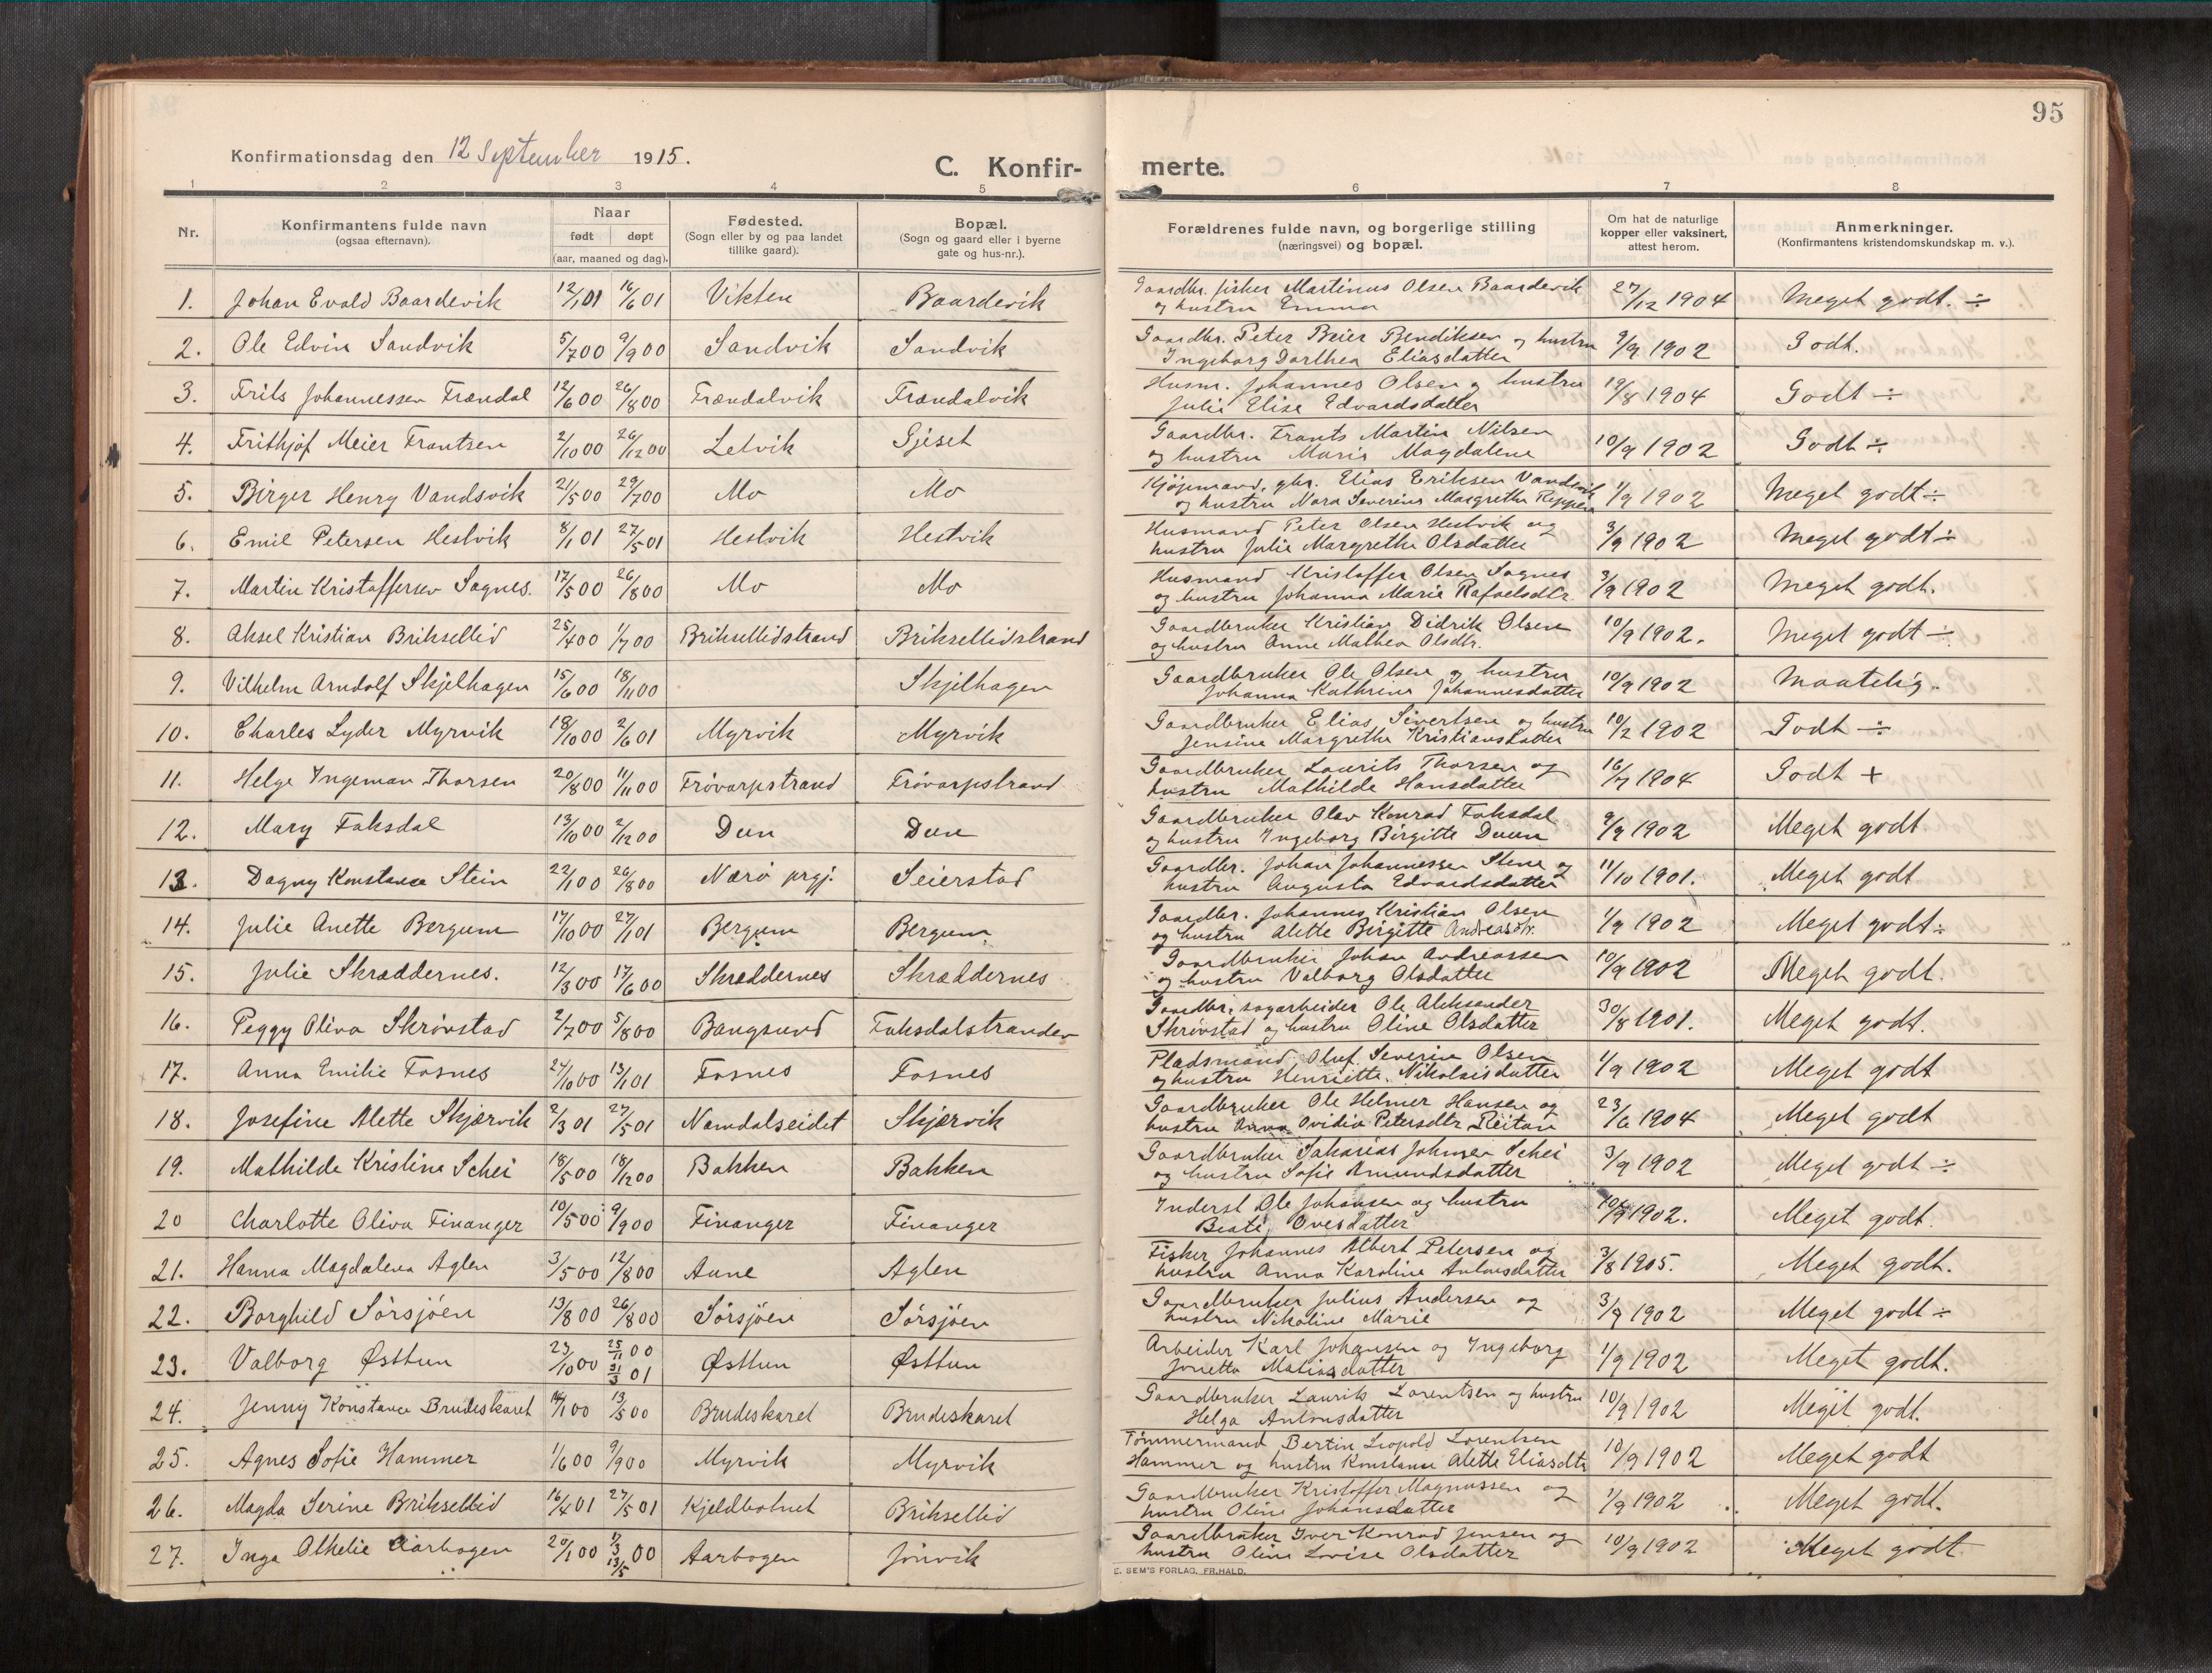 95
Konfirmationsdag den 12 September 1915.
C. Konfir-
merte.
1 2 3 4 5 6 7 8
Nr.
Konfirmantens fulde navn
(ogsaa efternavn).
Naar
født døpt
(aar, maaned og dag).
Fødested.
(Sogn eller by og paa landet
tillike gaard).
Bopæl.
(Sogn og gaard eller i byerne
gate og hus-nr.).
Forældrenes fulde navn, og borgerlige stilling
(næringsvei) og bopæl.
Om hat de naturlige
kopper eller vaksinert,
attest herom.
Anmerkninger.
(Konfirmantens kristendomskundskap m. v.).
1. Johan Evald Baardevik 12/1 01 16/6 01 Vikten Baardevik Gaardbr. fisker Martinus Olsen Baardevik 27/12 1904 Meget godt. ÷
og hustru Emma
2. Ole Edvin Sandvik 5/7 00 9/9 00 Sandvik Sandvik Gaardbr. Peter Beier Bendiksen og hustru 9/9 1902 Godt.
Ingeborg Dorthea Eliasdatter
3. Frits Johannessen Frændal 12/6 00 26/8 00 Frændalvik Frændalvik Husm. Johannes Olsen og hustru 19/8 1904 Godt ÷
Julie Elise Edvardsdatter
4. Frithjof Meier Frantsen 2/10 00 26/12 00 Letvik Gjeset Gaardbr. Frants Martin Nilsen 10/9 1902 Godt ÷
og hustru Marie Magdalene
5. Birger Henry Vandsvik 21/5 00 29/7 00 Mo Mo Kjøpmand, gbr. Elias Eriksen Vandsvik 1/9 1902 Meget godt ÷
og hustru Nora Severine Margrethe Reppen
6. Emil Petersen Hestvik 8/1 01 27/5 01 Hestvik Hestvik Husmand Peter Olsen Hestvik og 3/9 1902 Meget godt ÷
hustru Julie Margrethe Olsdatter
7. Martin Kristoffersen Sagnes. 17/5 00 26/8 00 Mo Mo Husmand Kristoffer Olsen Sagnes 3/9 1902 Meget godt.
og hustru Johanna Marie Rafaelsdtr.
8. Aksel Kristian Briksellid 25/4 00 1/7 00 Briksellidstrand Briksellidstrand Gaardbruker Kristian Didrik Olsen 10/9 1902. Meget godt ÷
og hustru Anne Mathea Olsdtr.
9. Vilhelm Arndolf Skjelhagen 15/6 00 18/11 00 Skjelhagen Gaardbruker Ole Olsen og hustru 10/9 1902 Maatelig.
Johanna Kathrine Johannesdatter
10. Charles Lyder Myrvik 18/10 00 2/6 01 Myrvik Myrvik Gaardbruker Elias Sivertsen og hustru 10/2 1902 Godt ÷
Jensine Margrethe Kristiansdatter
11. Helge Ingeman Thorsen 20/8 00 11/11 00 Frövarpstrand Frövarpstrand Gaardbruker Laurits Thorsen og 16/7 1904 Godt +
hustru Mathilde Hansdatter
12. Mary Faksdal 13/10 00 2/12 00 Dun Dun Gaardbruker Olav Konrad Faksdal 9/9 1902 Meget godt
og hustru Ingeborg Birgitte Duun
13. Dagny Konstance Stein 22/1 00 26/8 00 Nærö prgj. Seierstad Gaardbr. Johan Johannessen Stene og 11/10 1901. Meget godt
hustru Augusta Edvardsdatter
14. Julie Anette Bergum 17/10 00 27/1 01 Bergum Bergum Gaardbr. Johannes Kristian Olsen 1/9 1902 Meget godt ÷
og hustru Alette Birgitte Andreasdtr.
15. Julie Skræddernes. 12/3 00 17/6 00 Skræddernes Skræddernes Gaardbruker Johan Andreassen 10/9 1902 Meget godt.
og hustru Valborg Olsdatter
16. Peggy Oliva Skrövstad 2/7 00 5/8 00 Bangsund Faksdalstranden Gaardbr. sagarbeider Ole Aleksander 30/8 1901. Meget godt.
Skrövstad og hustru Oline Olsdatter
17. Anna Emilie Fosnes 24/10 00 13/1 01 Fosnes Fosnes Pladsmand Oluf Severin Olsen 1/9 1902 Meget godt
og hustru Henriette Nikolaisdatter
18. Josefine Alette Skjærvik 2/3 01 27/5 01 Namdalseidet Skjærvik Gaardbruker Ole Helmer Hansen og 23/6 1904 Meget godt
hustru Anna Ovidia Petersdtr Reitan
19. Mathilde Kristine Schei 18/5 00 18/12 00 Bakken Bakken Gaardbruker Sakarias Johnsen Schei 3/9 1902 Meget godt ÷
og hustru Sofie Amundsdatter
20 Charlotte Oliva Finanger 10/5 00 9/9 00 Finanger Finanger Inderst Ole Johansen og hustru 10/9 1902. Meget godt.
Beate Ovesdatter
21. Hanna Magdalena Aglen 3/5 00 12/8 00 Aune Aglen Fisker Johannes Albert Petersen og 3/8 1905. Meget godt.
hustru Anna Karoline Antonsdatter
22. Borghild Sörsjöen 13/8 00 26/8 00 Sörsjöen Sörsjöen Gaardbruker Julius Andersen og 3/9 1902 Meget godt ÷
hustru Nikoline Marie
23. Valborg Østtun 23/10 00 25/11 00 31/3 01 Østtun Østtun Arbeider Karl Johansen og Ingeborg 1/9 1902 Meget godt.
Jonetta Matiasdatter
24. Jenny Konstance Brudeskaret 14/1 00 13/5 00 Brudeskaret Brudeskaret Gaardbruker Laurits Lorentsen og hustru 10/9 1902 Meget godt.
Helga Antonsdatter
25. Agnes Sofie Hammer 1/6 00 9/9 00 Myrvik Myrvik Tömmermand Bertin Leopold Lorentsen 10/9 1902 Meget godt
Hammer og hustru Konstanse Alette Eliasdtr
26. Magda Serine Briksellid 16/4 01 27/5 01 Kjeldbotnet Briksellid Gaardbruker Kristoffer Magnussen og 1/9 1902 Meget godt.
hustru Oline Johansdatter
27. Inga Othelie Aarbogen 20/1 00 17/3 13/5 00 Aarbogen Jönvik Gaardbruker Iver Konrad Jensen og 10/9 1902 Meget godt
hustru Oline Lovise Olsdatter
E. SEM'S FORLAG, FR.HALD.